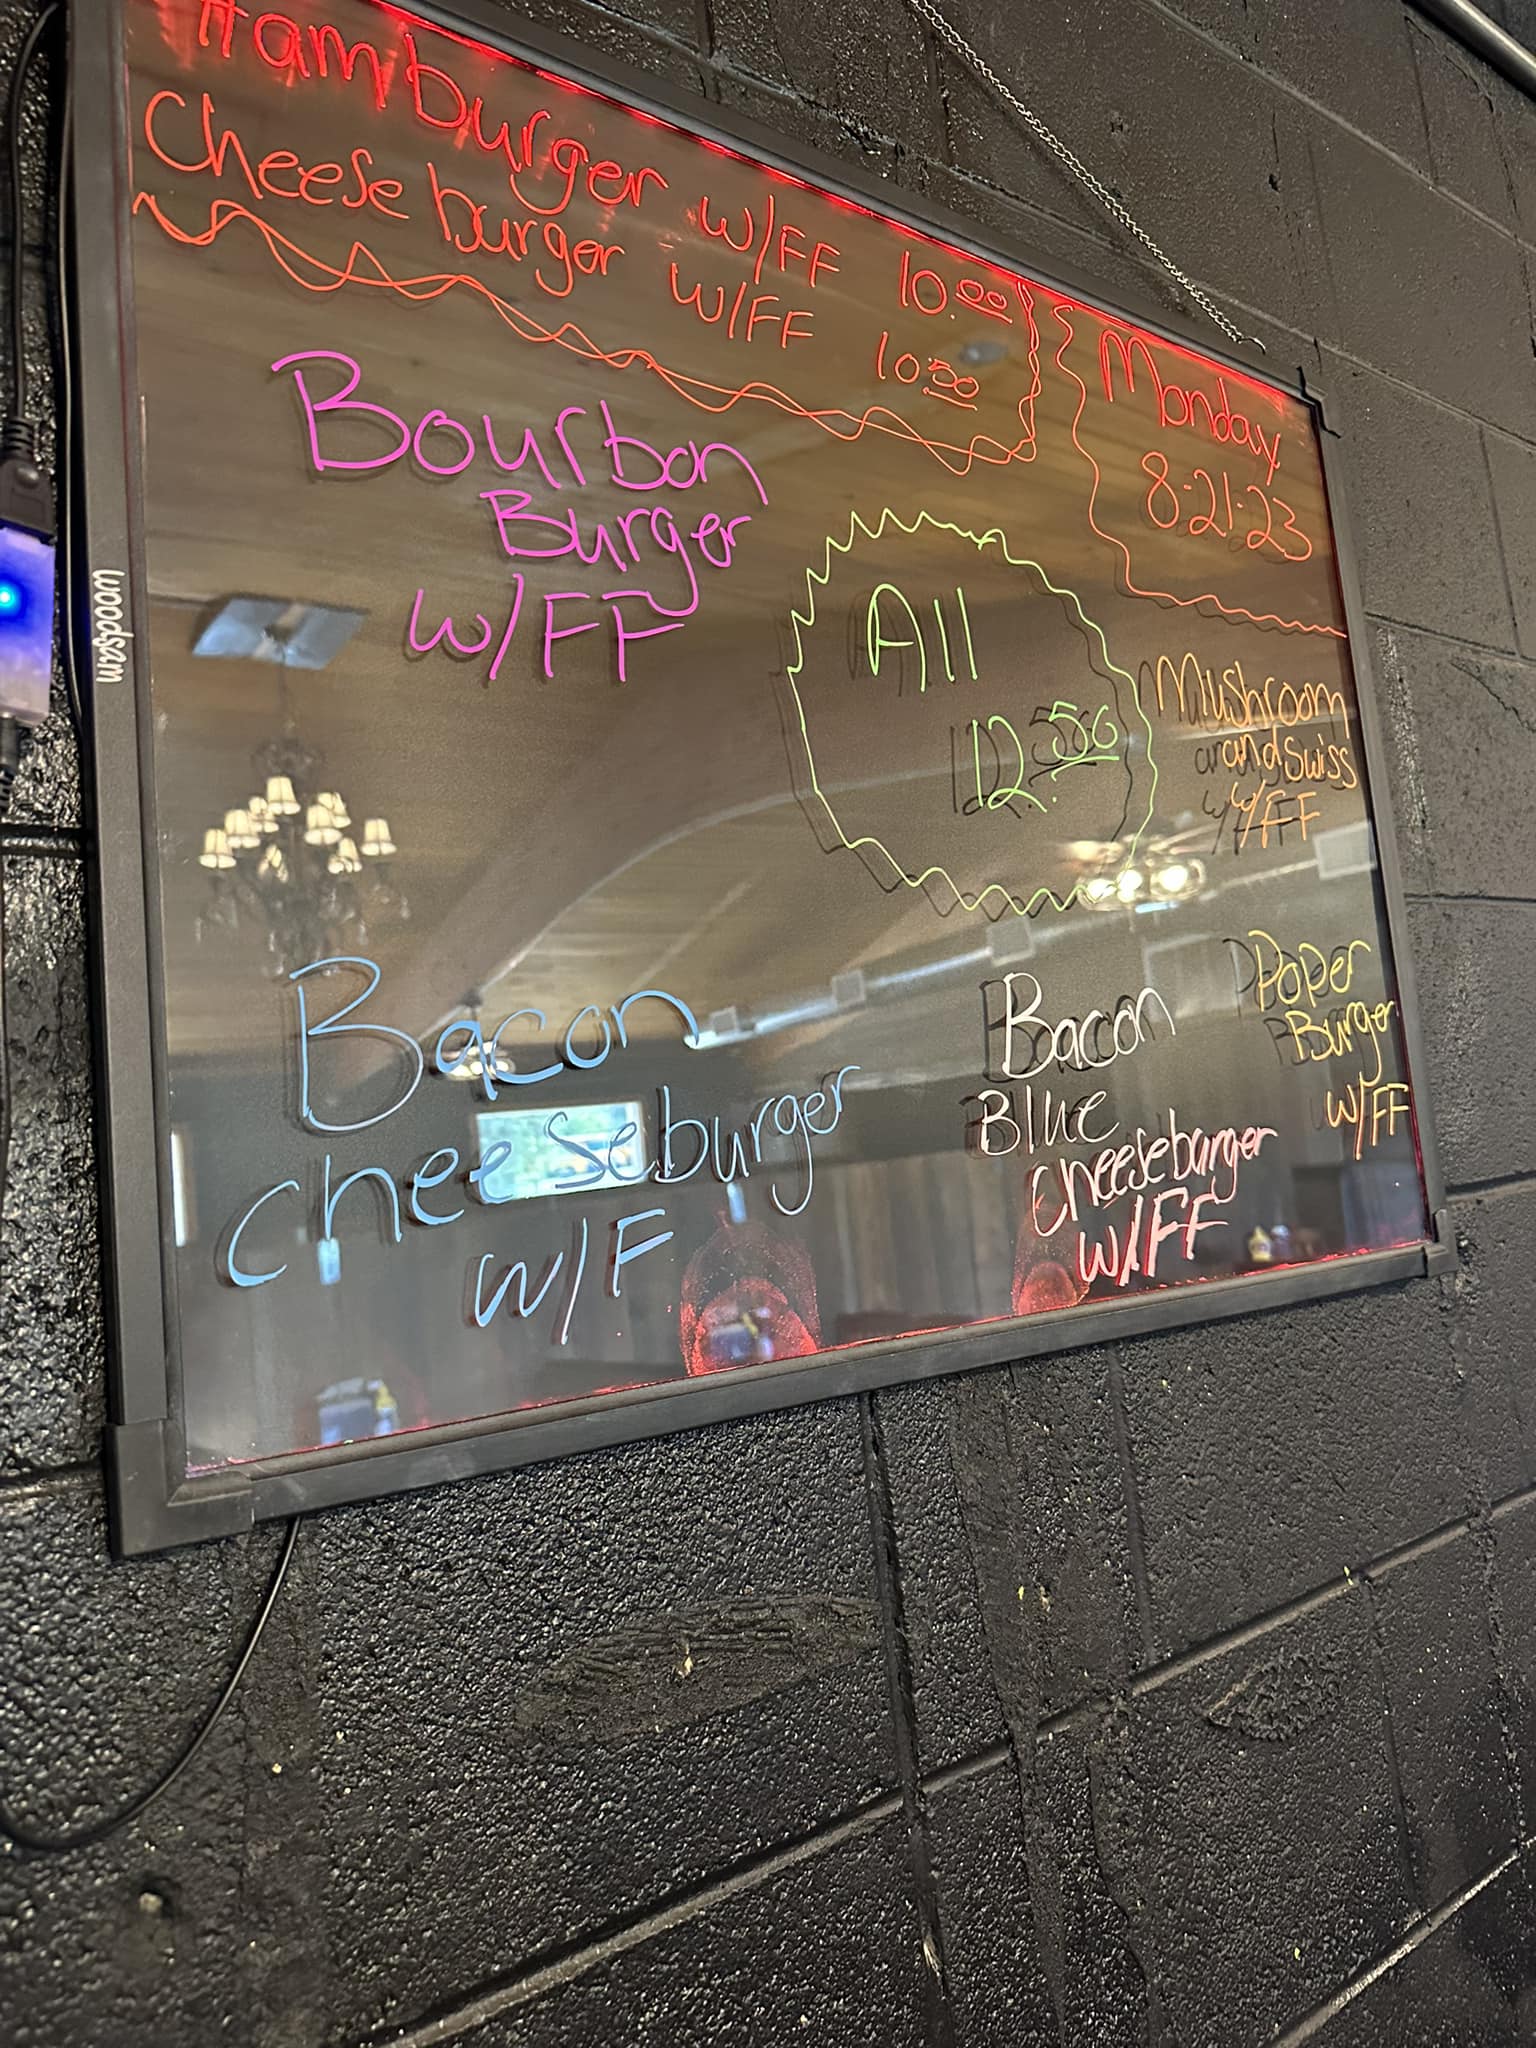 Hamburger w/FF 10.00
Cheeseburger w/FF 10.50
Monday
8.21.23
Bourbon
Burger
w/FF
All
12.50
Mushroom
and Swiss
w/FF
Bacon
cheeseburger
w/F
Bacon
Blue
cheeseburger
w/FF
Poper
Burger
w/FF
woodsam